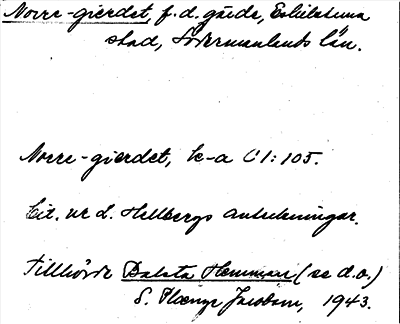 Norre-gierdet, f.d. gärde, Eskilstuna
stad, Södermanlands län.
Norre-gierdet, le-a C1:105.
Cit. ur L. Hellbergs anteckningar.
Tillhörde Balsta Hemman (se d.o.)
S. Jacobson, 1943.